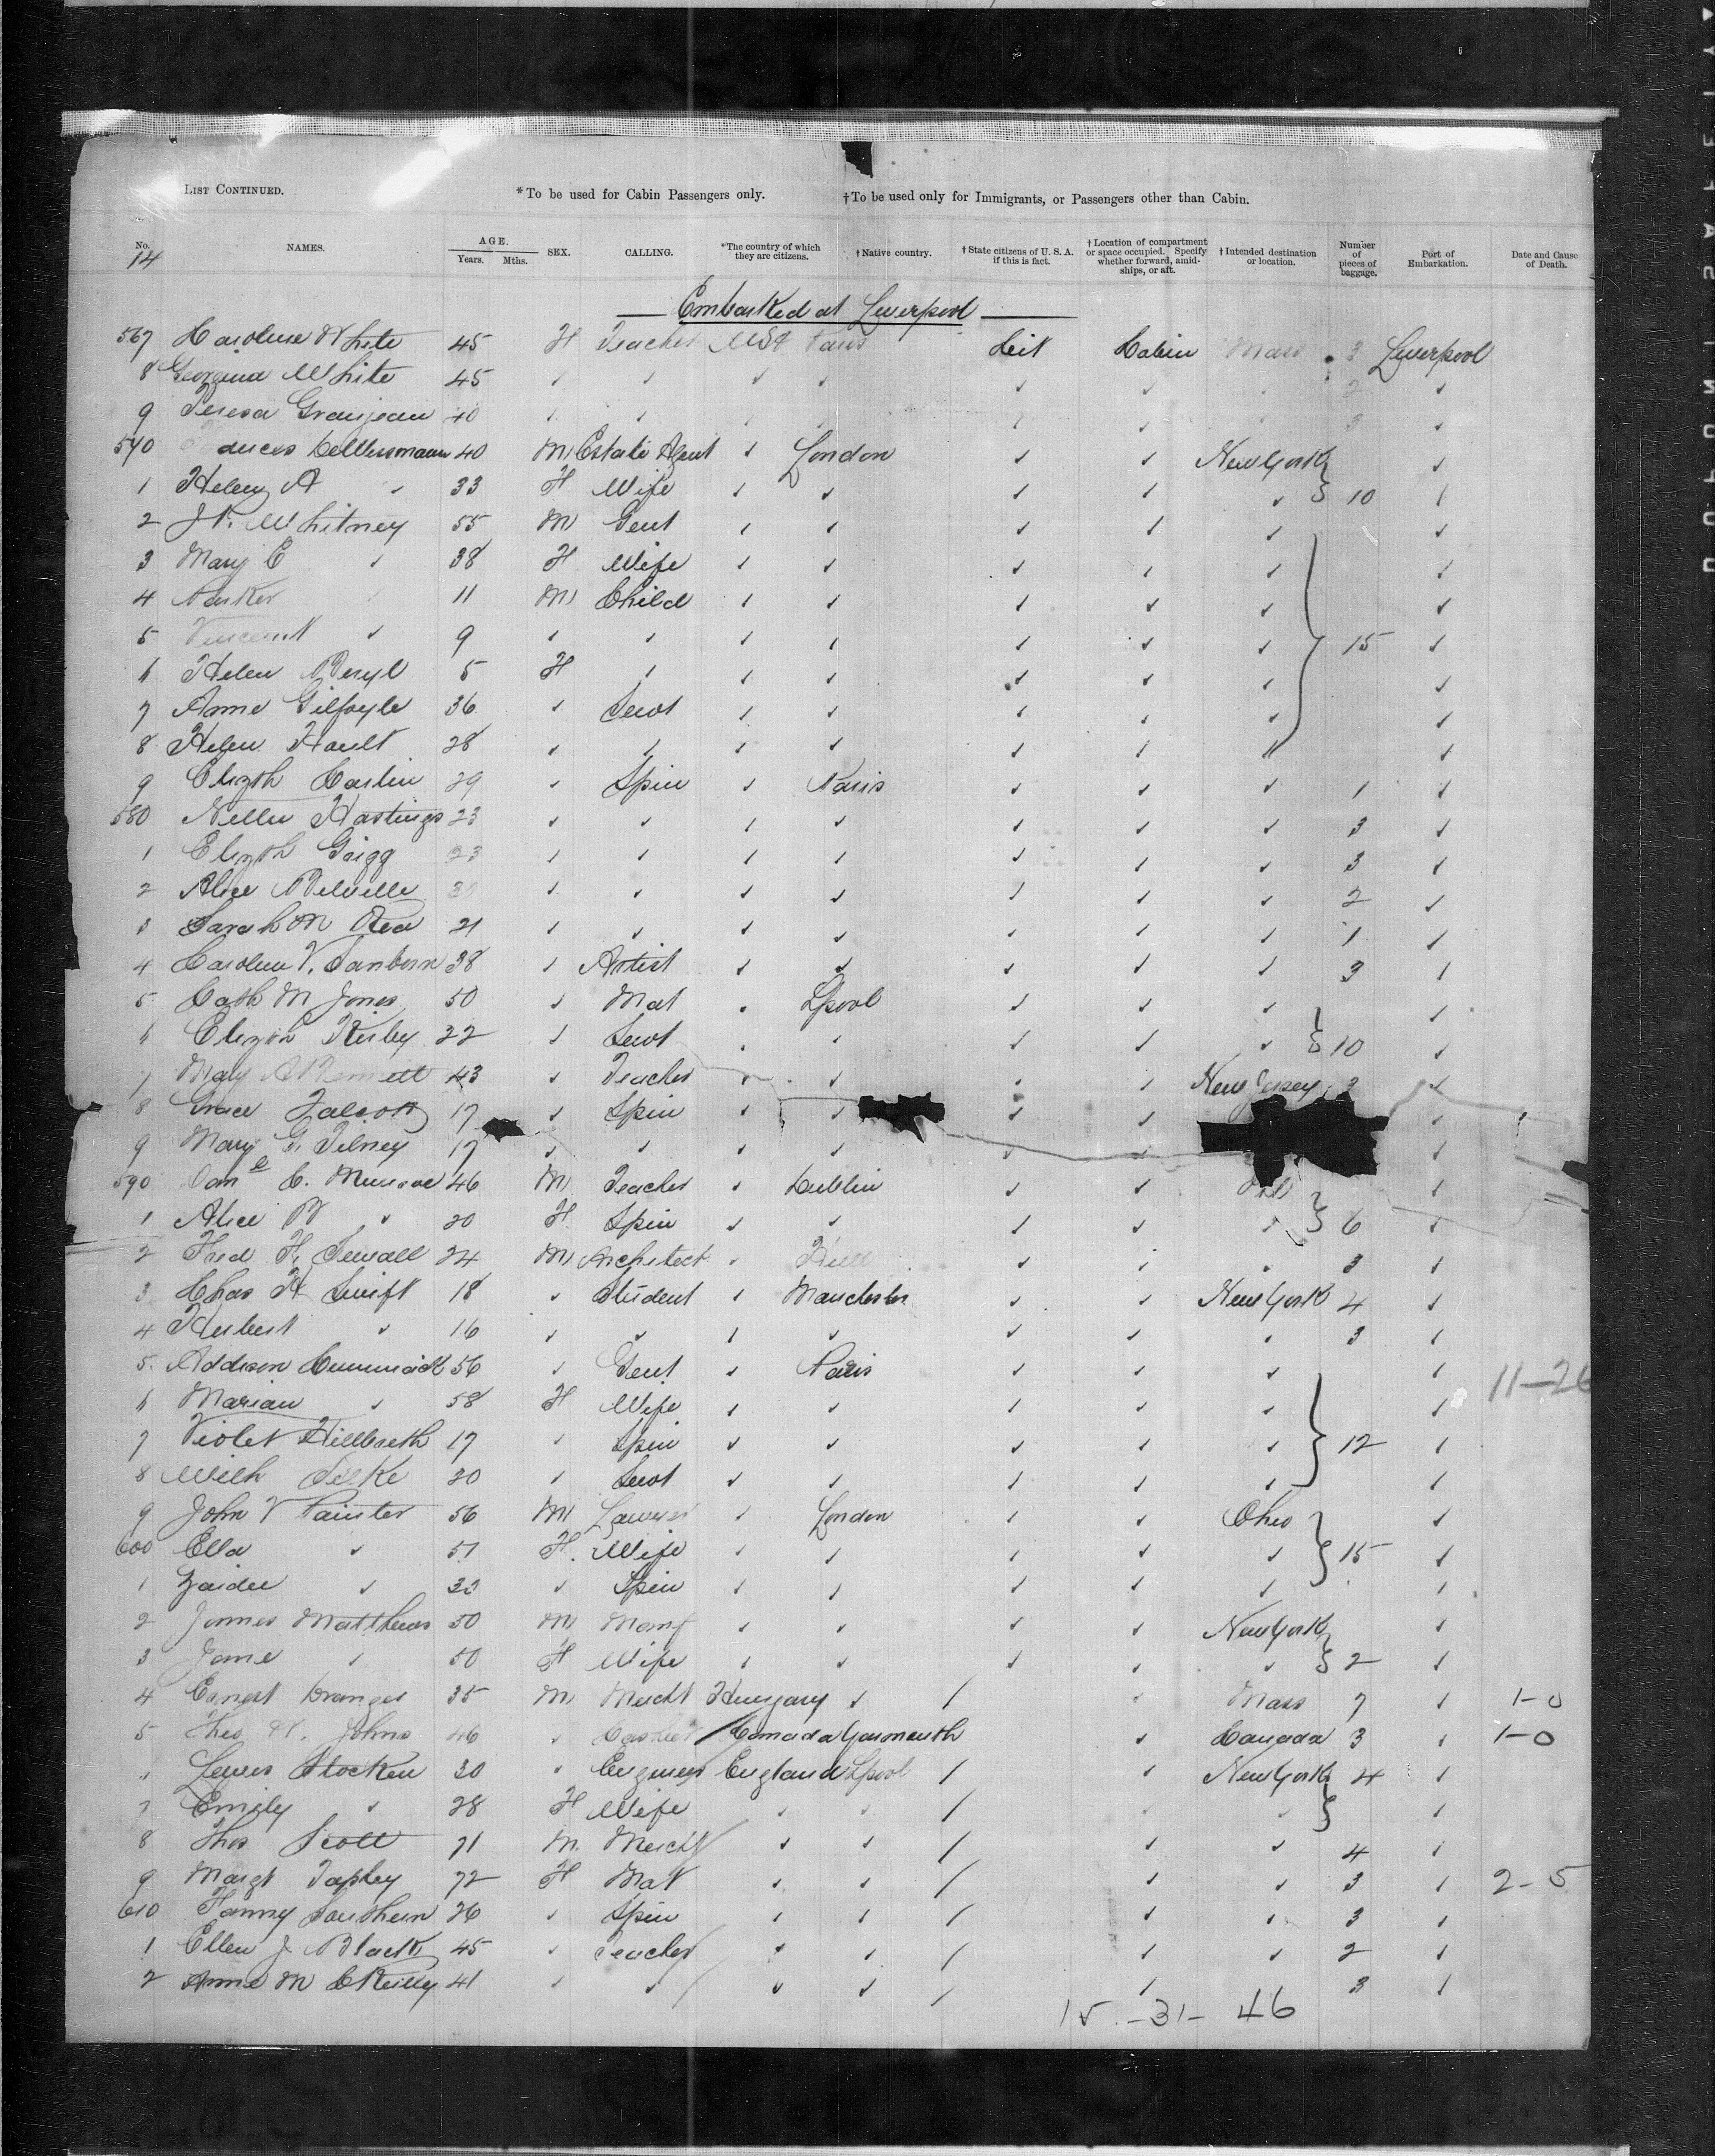 LIST CONTINUED. *To be used for Cabin Passengers only. †To be used only for Immigrants, or Passengers other than Cabin.
No. NAMES. AGE. Years. Mths. SEX. CALLING. *The country of which they are citizens. †Native country. †State citizens of U. S. A. if this is fact. †Location of compartment or space occupied. Specify whether forward, amidships, or aft. †Intended destination or location. Number of pieces of baggage. Port of Embarkation. Date and Cause of Death.
14
Embarked at Liverpool
567 Caroline White 45 F Teacher USA Paris Cit Cabin Mass 3 Liverpool
8 Georgina White 45 ✓ ✓ ✓ ✓ ✓ ✓ ✓ 2 ✓
9 Teresa Granjean 40 ✓ ✓ ✓ ✓ ✓ ✓ ✓ 3 ✓
570 40 M Estate Agent ✓ London ✓ ✓ New York ✓
1 Helen A ✓ 33 F Wife ✓ ✓ ✓ ✓ ✓ 10 ✓
2 Whitney 55 M Gent ✓ ✓ ✓ ✓ ✓ ✓
3 Mary E ✓ 38 F Wife ✓ ✓ ✓ ✓ ✓ ✓
4 Parker ✓ 11 M Child ✓ ✓ ✓ ✓ ✓ ✓
5 Vincent ✓ 9 ✓ ✓ ✓ ✓ ✓ ✓ ✓ 15 ✓
6 Helen Beryl 5 F ✓ ✓ ✓ ✓ ✓ ✓ ✓
7 Anne Gilfoyle 36 ✓ Servt ✓ ✓ ✓ ✓ ✓ ✓
8 Helen Hault 28 ✓ ✓ ✓ ✓ ✓ ✓ ✓ ✓
9 Elizth Carlin 29 ✓ Spin ✓ Paris ✓ ✓ ✓ 1 ✓
580 Nellie Hastings 23 ✓ ✓ ✓ ✓ ✓ ✓ ✓ 3 ✓
1 Elizth Grigg 23 ✓ ✓ ✓ ✓ ✓ ✓ ✓ 3 ✓
2 Alice Belville ✓ ✓ ✓ ✓ ✓ ✓ ✓ 2 ✓
3 Sarah M Rea 21 ✓ ✓ ✓ ✓ ✓ ✓ ✓ 1 ✓
4 Caroline V. Sanborn 38 ✓ Artist ✓ ✓ ✓ ✓ ✓ 3 ✓
5 Cath M Jones 50 ✓ Mat ✓ Lpool ✓ ✓ ✓ ✓
6 Elizth Kirby 22 ✓ Servt ✓ ✓ ✓ ✓ ✓ 10 ✓
7 Mary A Bennett 43 ✓ Teacher ✓ ✓ ✓ ✓ New Jersey 3 ✓
8 Grace 17 ✓ Spin ✓ ✓ ✓ ✓ ✓
9 Mary G. Tilney 17 ✓ ✓ ✓ ✓ ✓ ✓ ✓
590 C. Munroe 46 M Teacher ✓ Dublin ✓ ✓ ✓
1 Alice B ✓ 20 F Spin ✓ ✓ ✓ ✓ ✓ 6 ✓
2 Fred H. Sewall 24 M Architect ✓ Hull ✓ ✓ ✓ 3 ✓
3 Chas H Swift 18 ✓ Student ✓ Manchester ✓ ✓ New York 4 ✓
4 Herbert ✓ 16 ✓ ✓ ✓ ✓ ✓ ✓ ✓ 3 ✓
5 Addison Cammack 56 ✓ Gent ✓ Paris ✓ ✓ ✓ ✓ 11-26
6 Marian ✓ 58 F Wife ✓ ✓ ✓ ✓ ✓ ✓
7 Violet Hillbreth 17 ✓ Spin ✓ ✓ ✓ ✓ ✓ 12 ✓
8 20 ✓ Servt ✓ ✓ ✓ ✓ ✓ ✓
9 John V Painter 56 M Lawyer ✓ London ✓ ✓ Ohio ✓
600 Ella ✓ 51 F. Wife ✓ ✓ ✓ ✓ ✓ 15 ✓
1 Zaidee ✓ ✓ Spin ✓ ✓ ✓ ✓ ✓ ✓
2 James Matthews 50 M Manf ✓ ✓ ✓ ✓ New York ✓
3 Jane ✓ 50 F Wife ✓ ✓ ✓ ✓ ✓ 2 ✓
4 Ernest Dranger 35 M Mercht Hungary ✓ / ✓ Mass 7 ✓ 1-0
5 Theo Johns 46 ✓ Canada Yarmouth ✓ Canada 3 ✓ 1-0
Lewis Stocken 30 ✓ Engineer England Lpool / ✓ New York 4 ✓
7 Emily ✓ 28 F Wife ✓ ✓ / ✓ ✓ ✓
8 Thos Scott 71 M. Mercht ✓ ✓ / ✓ ✓ 4 ✓
9 Margt Tapley 72 F Mat ✓ ✓ / ✓ ✓ 3 ✓ 2-5
610 Fanny Southern 26 ✓ Spin ✓ ✓ / ✓ ✓ 3 ✓
1 Ellen J Black 45 ✓ Teacher ✓ ✓ / ✓ ✓ 2 ✓
2 Anne M O'Reilly 41 ✓ ✓ / ✓ ✓ / ✓ 3 ✓
15-31-46